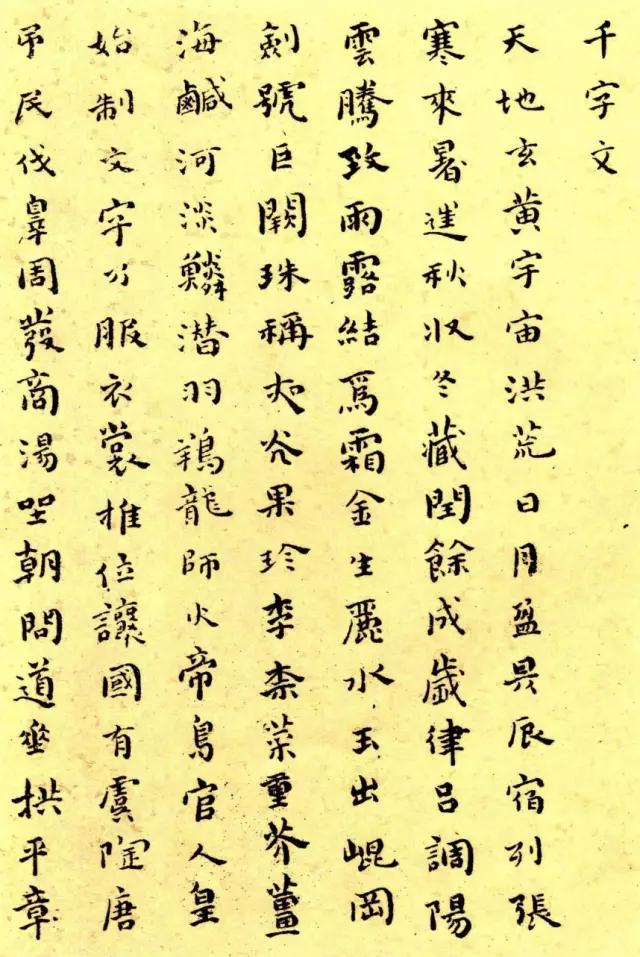 千字文
天地玄黄宇宙洪荒日月盈昃辰宿列張
寒來暑往秋收冬藏閏餘成歲律呂調陽
雲騰致雨露結爲霜金生麗水玉出崐岡
劍號巨闕珠稱夜光果珍李柰菜重芥薑
海鹹河淡鱗潜羽翔龍師火帝鳥官人皇
始制文字乃服衣裳推位讓國有虞陶唐
弔民伐辠周發商湯坐朝問道垂拱平章